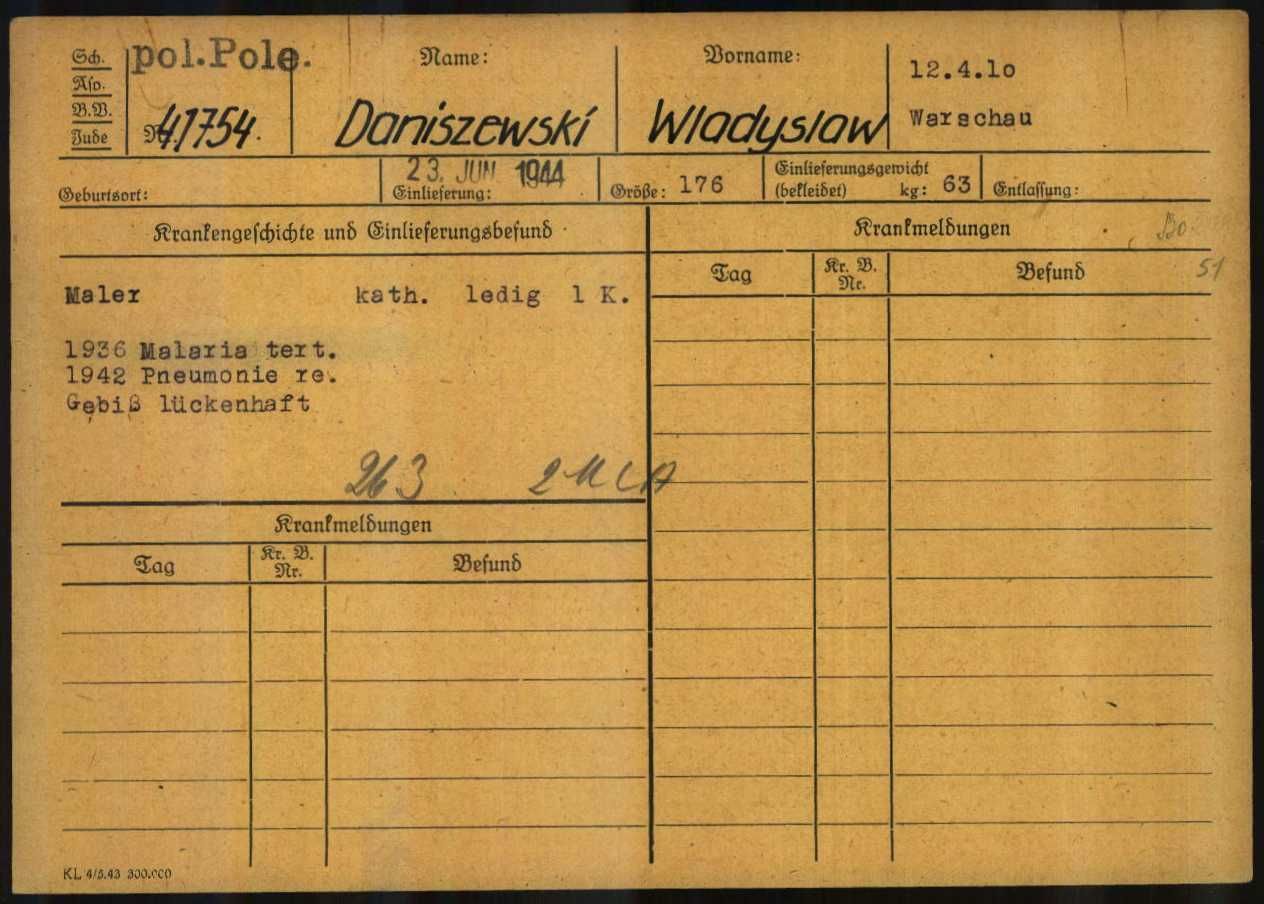 Sch.
Aso.
B.V.
Jude
pol.Pole.
Nr. 41754.
Name:
Daniszewski
Vorname:
Wladyslaw
12.4.1o
Warschau
Geburtsort:
23. JUN 1944
Einlieferung:
Größe: 176
Einlieferungsgewicht
(bekleidet) kg: 63
Entlassung:
Krankengeschichte und Einlieferungsbefund
Maler kath. ledig 1 K.
1936 Malaria tert.
1942 Pneumonie re.
Gebiß lückenhaft
263
Krankmeldungen
Tag Kr. B. Nr. Befund
Krankmeldungen
Tag Kr. B. Nr. Befund
51
KL 4/5.43 300.000